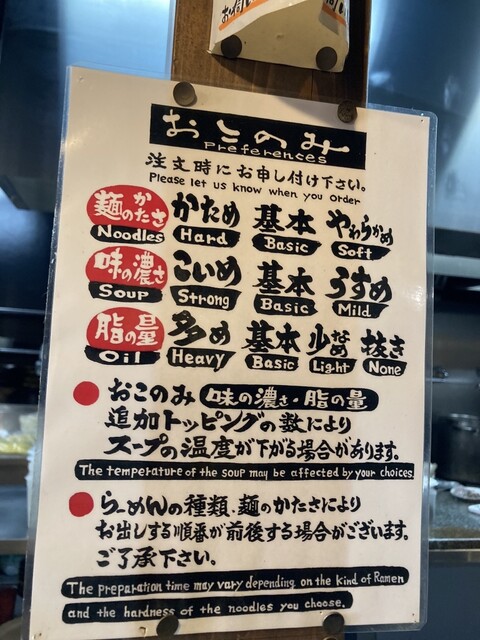 おこのみ
Preferences
注文時にお申し付け下さい。
Please let us know when you order
麺のかたさ かため 基本 やわらかめ
Noodles Hard Basic Soft
味の濃さ こいめ 基本 うすめ
Soup Strong Basic Mild
脂の量 多め 基本 少なめ 抜き
Oil Heavy Basic Light None
● おこのみ 味の濃さ・脂の量
追加トッピングの数により
スープの温度が下がる場合があります。
The temperature of the soup may be affected by your choices.
● らーめんの種類、麺のかたさにより
お出しする順番が前後する場合がございます。
ご了承下さい。
The preparation time may vary depending on the kind of Ramen
and the hardness of the noodles you choose.